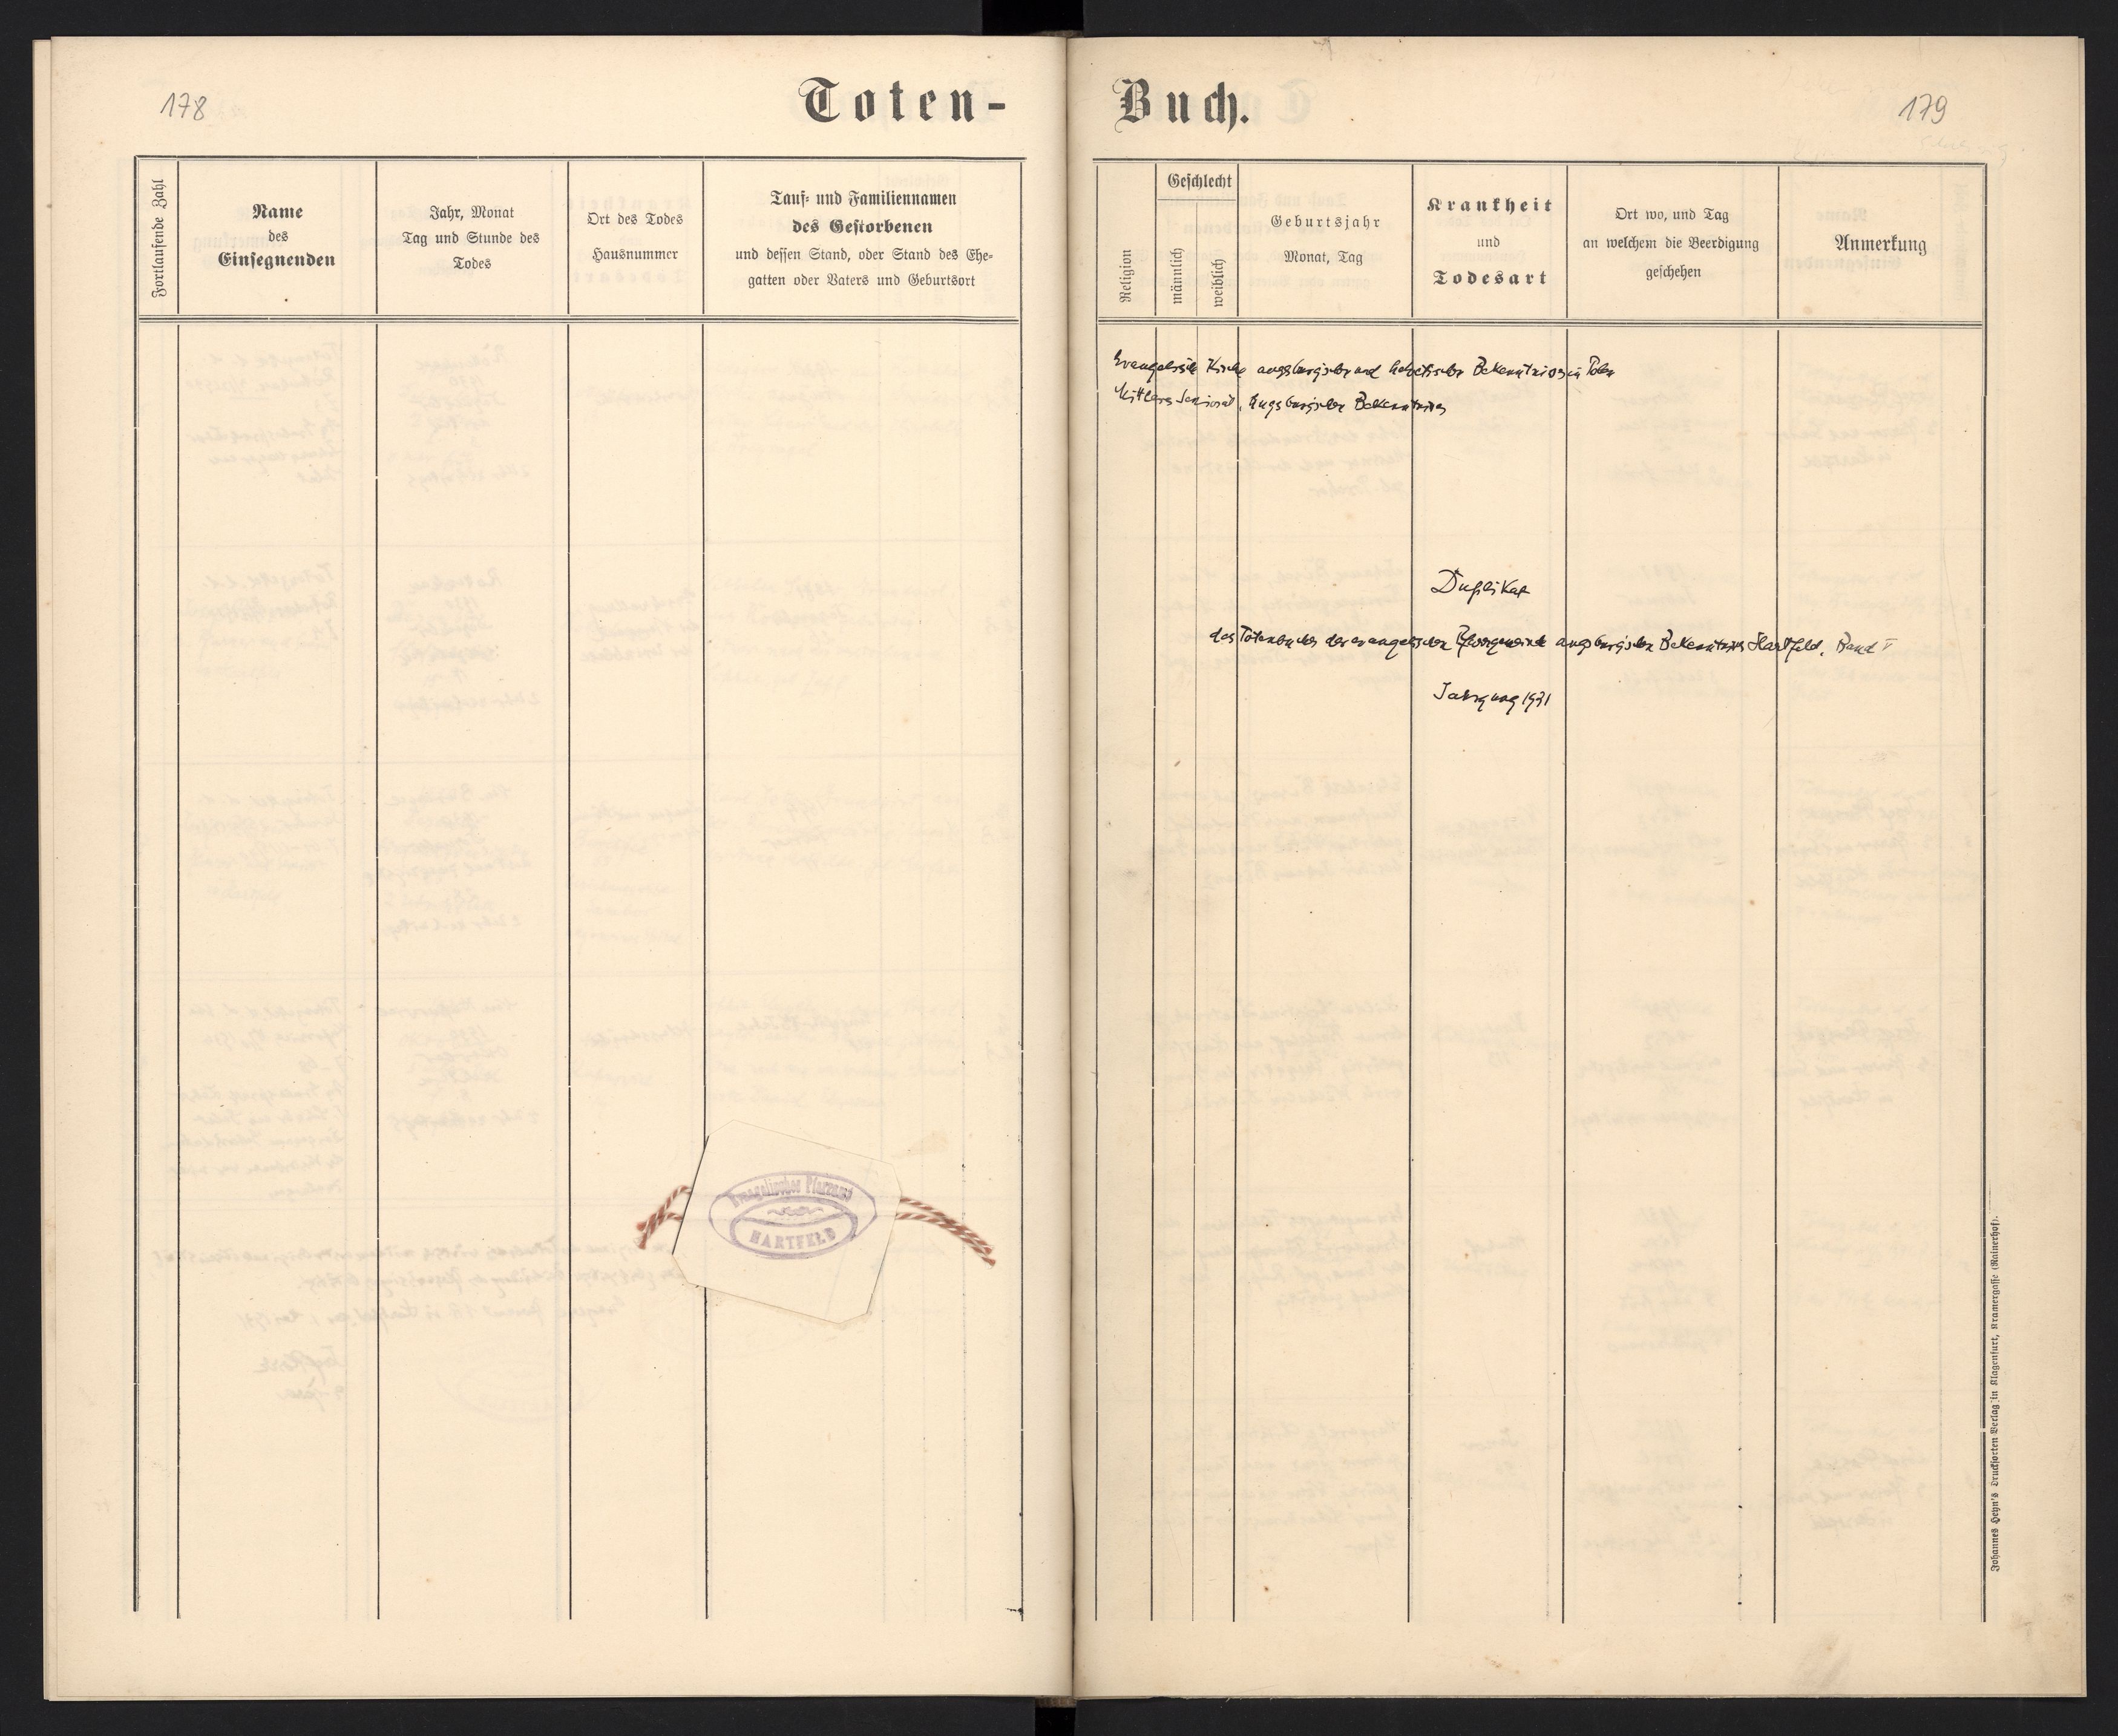 178
Toten-
Fortlaufende Zahl
Name
des
Einsegnenden
Jahr, Monat
Tag und Stunde des
Todes
Ort des Todes
Hausnummer
Tauf- und Familiennamen
des Gestorbenen
und dessen Stand, oder Stand des Ehe-
gatten oder Vaters und Geburtsort
Evangelisches Pfarramt
HARTFELD
Buch.
179
Religion
Geschlecht
männlich
weiblich
Geburtsjahr
Monat, Tag
Krankheit
und
Todesart
Ort wo, und Tag
an welchem die Beerdigung
geschehen
Anmerkung
Evangelische Kirche augsburgischer und helvetischer Bekenntnisses in Polen
Mittleres Seniorat, Augsburgischen Bekenntnisses
Duplikat
des Totenbuches der evangelischen Pfarrgemeinde augsburgischen Bekenntnisses Hartfeld, Band V
Jahrgang 1931
Johannes Heyn's Drucksorten Verlag in Klagenfurt, Kramergasse (Rainerhof).